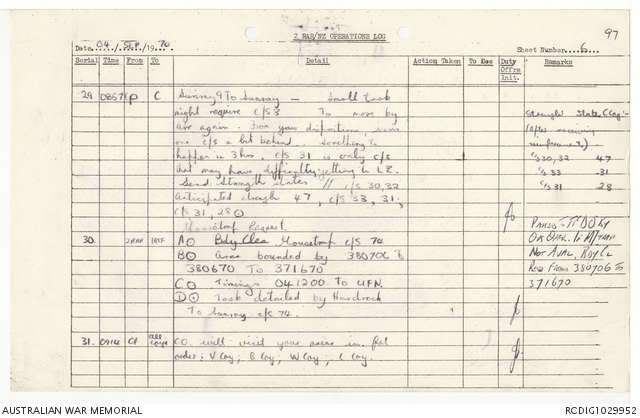 97
2 RAR/NZ OPERATIONS LOG
Date 04 / SEP /19 70
Sheet Number 6
Serial Time From To Detail Action Taken To Doc Duty Offrs Init. Remarks
29 0857 P C Sunray 9 To Sunray — Small task
might require C/S 3 To move by
air again. From your dispositions, seems
one C/S a bit behind. Something to
happen in 3 hrs. C/S 31 is only C/S
that may have difficulty getting to LZ.
Send Strength states // C/S 30, 32
Anticipated strength 47, C/S 33, 31,
C/S 31, 28
Strength State C Coy:-
(After receiving
reinforcements)
C/S 30, 32 47
C/S 33 31
C/S 31 28
Request
30. 2RAR 1ATF A Bdy Clea C/S 74
B Area bounded by 380706 To
380670 To 371670
C Timings 041200 To UFN.
D Task detailed by Hardrock
To Sunray C/S 74.
Passed To
Not Avail
From 380706 To
371670
31. 0914 C9 All Coys CO. will visit your areas in fol
order; V Coy; B Coy, W Coy; C Coy.
AUSTRALIAN WAR MEMORIAL
RCDIG1029952